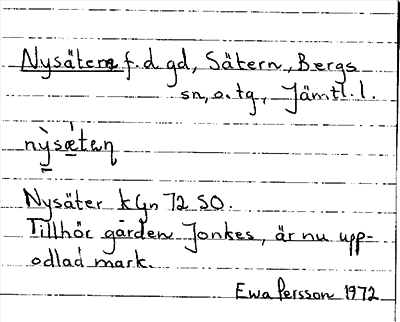 Nysätern f.d. gd, Sätern, Bergs
sn, o. tg, Jämtl. l.
nỳsæ̀tеɳ
Nysäter kGn 72 SO.
Tillhör gården Jonkes, är nu upp-
odlad mark.
Ewa Persson 1972